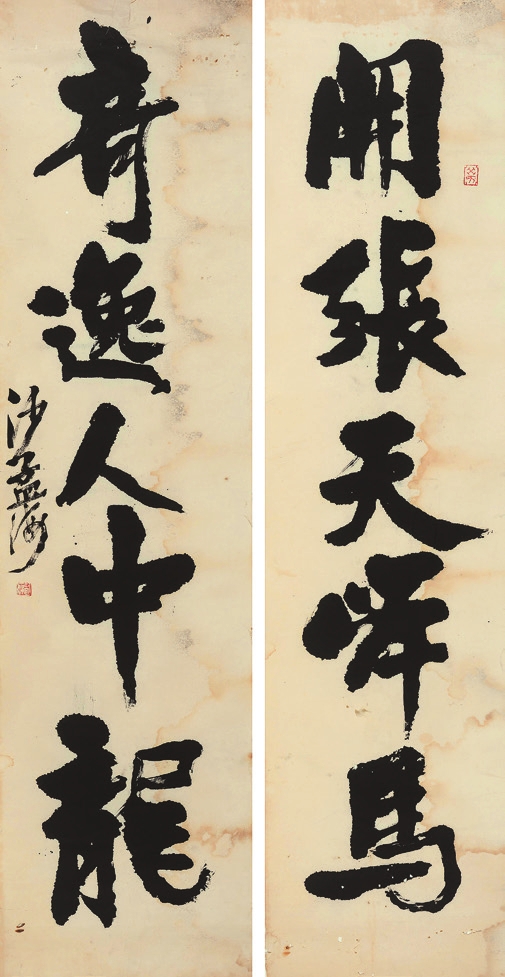 開張天岸馬
奇逸人中龍
沙孟海